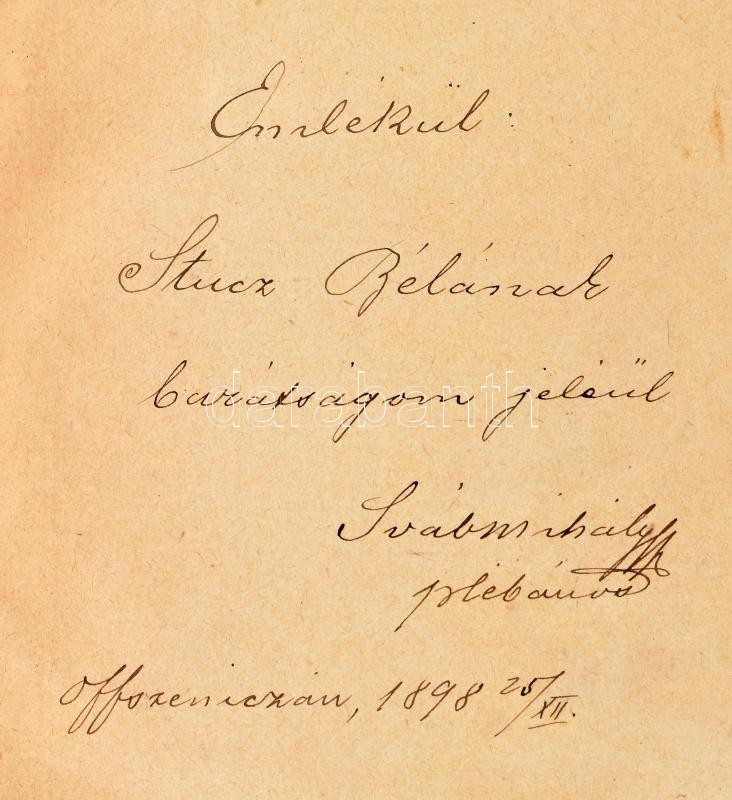 Emlékül:
Stucz Bélának
barátságom jeléül
darabanth
Sváb Mihály
plébános
Offszeniczán, 1898 25/XII.